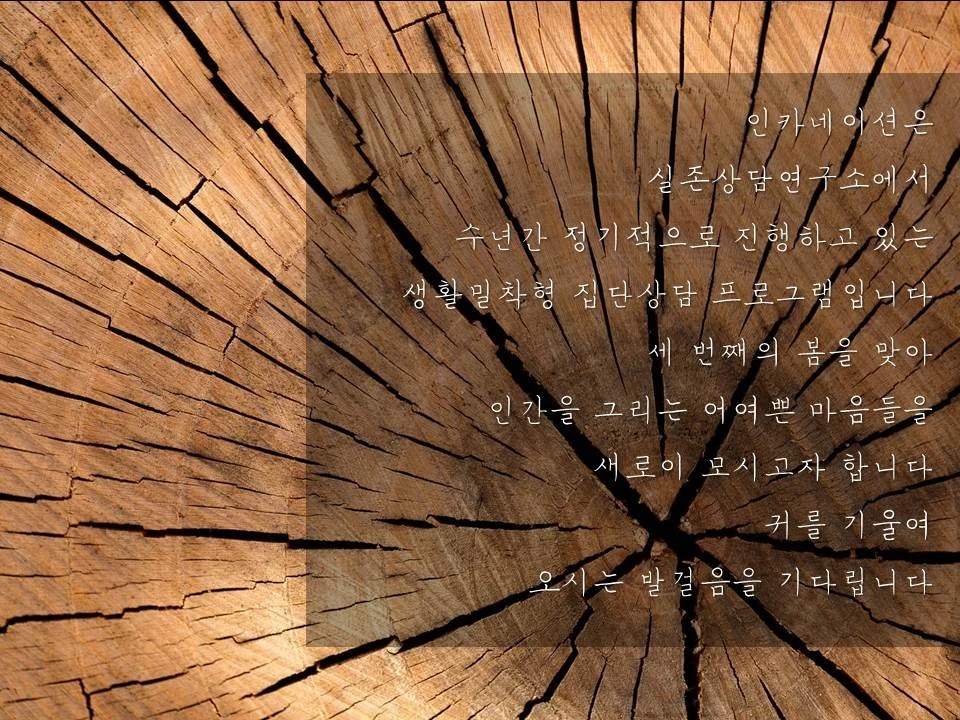 인카네이션은
실존상담연구소에서
수년간 정기적으로 진행하고 있는
생활밀착형 집단상담 프로그램입니다
세 번째의 봄을 맞아
인간을 그리는 어여쁜 마음들을
새로이 모시고자 합니다
귀를 기울여
오시는 발걸음을 기다립니다